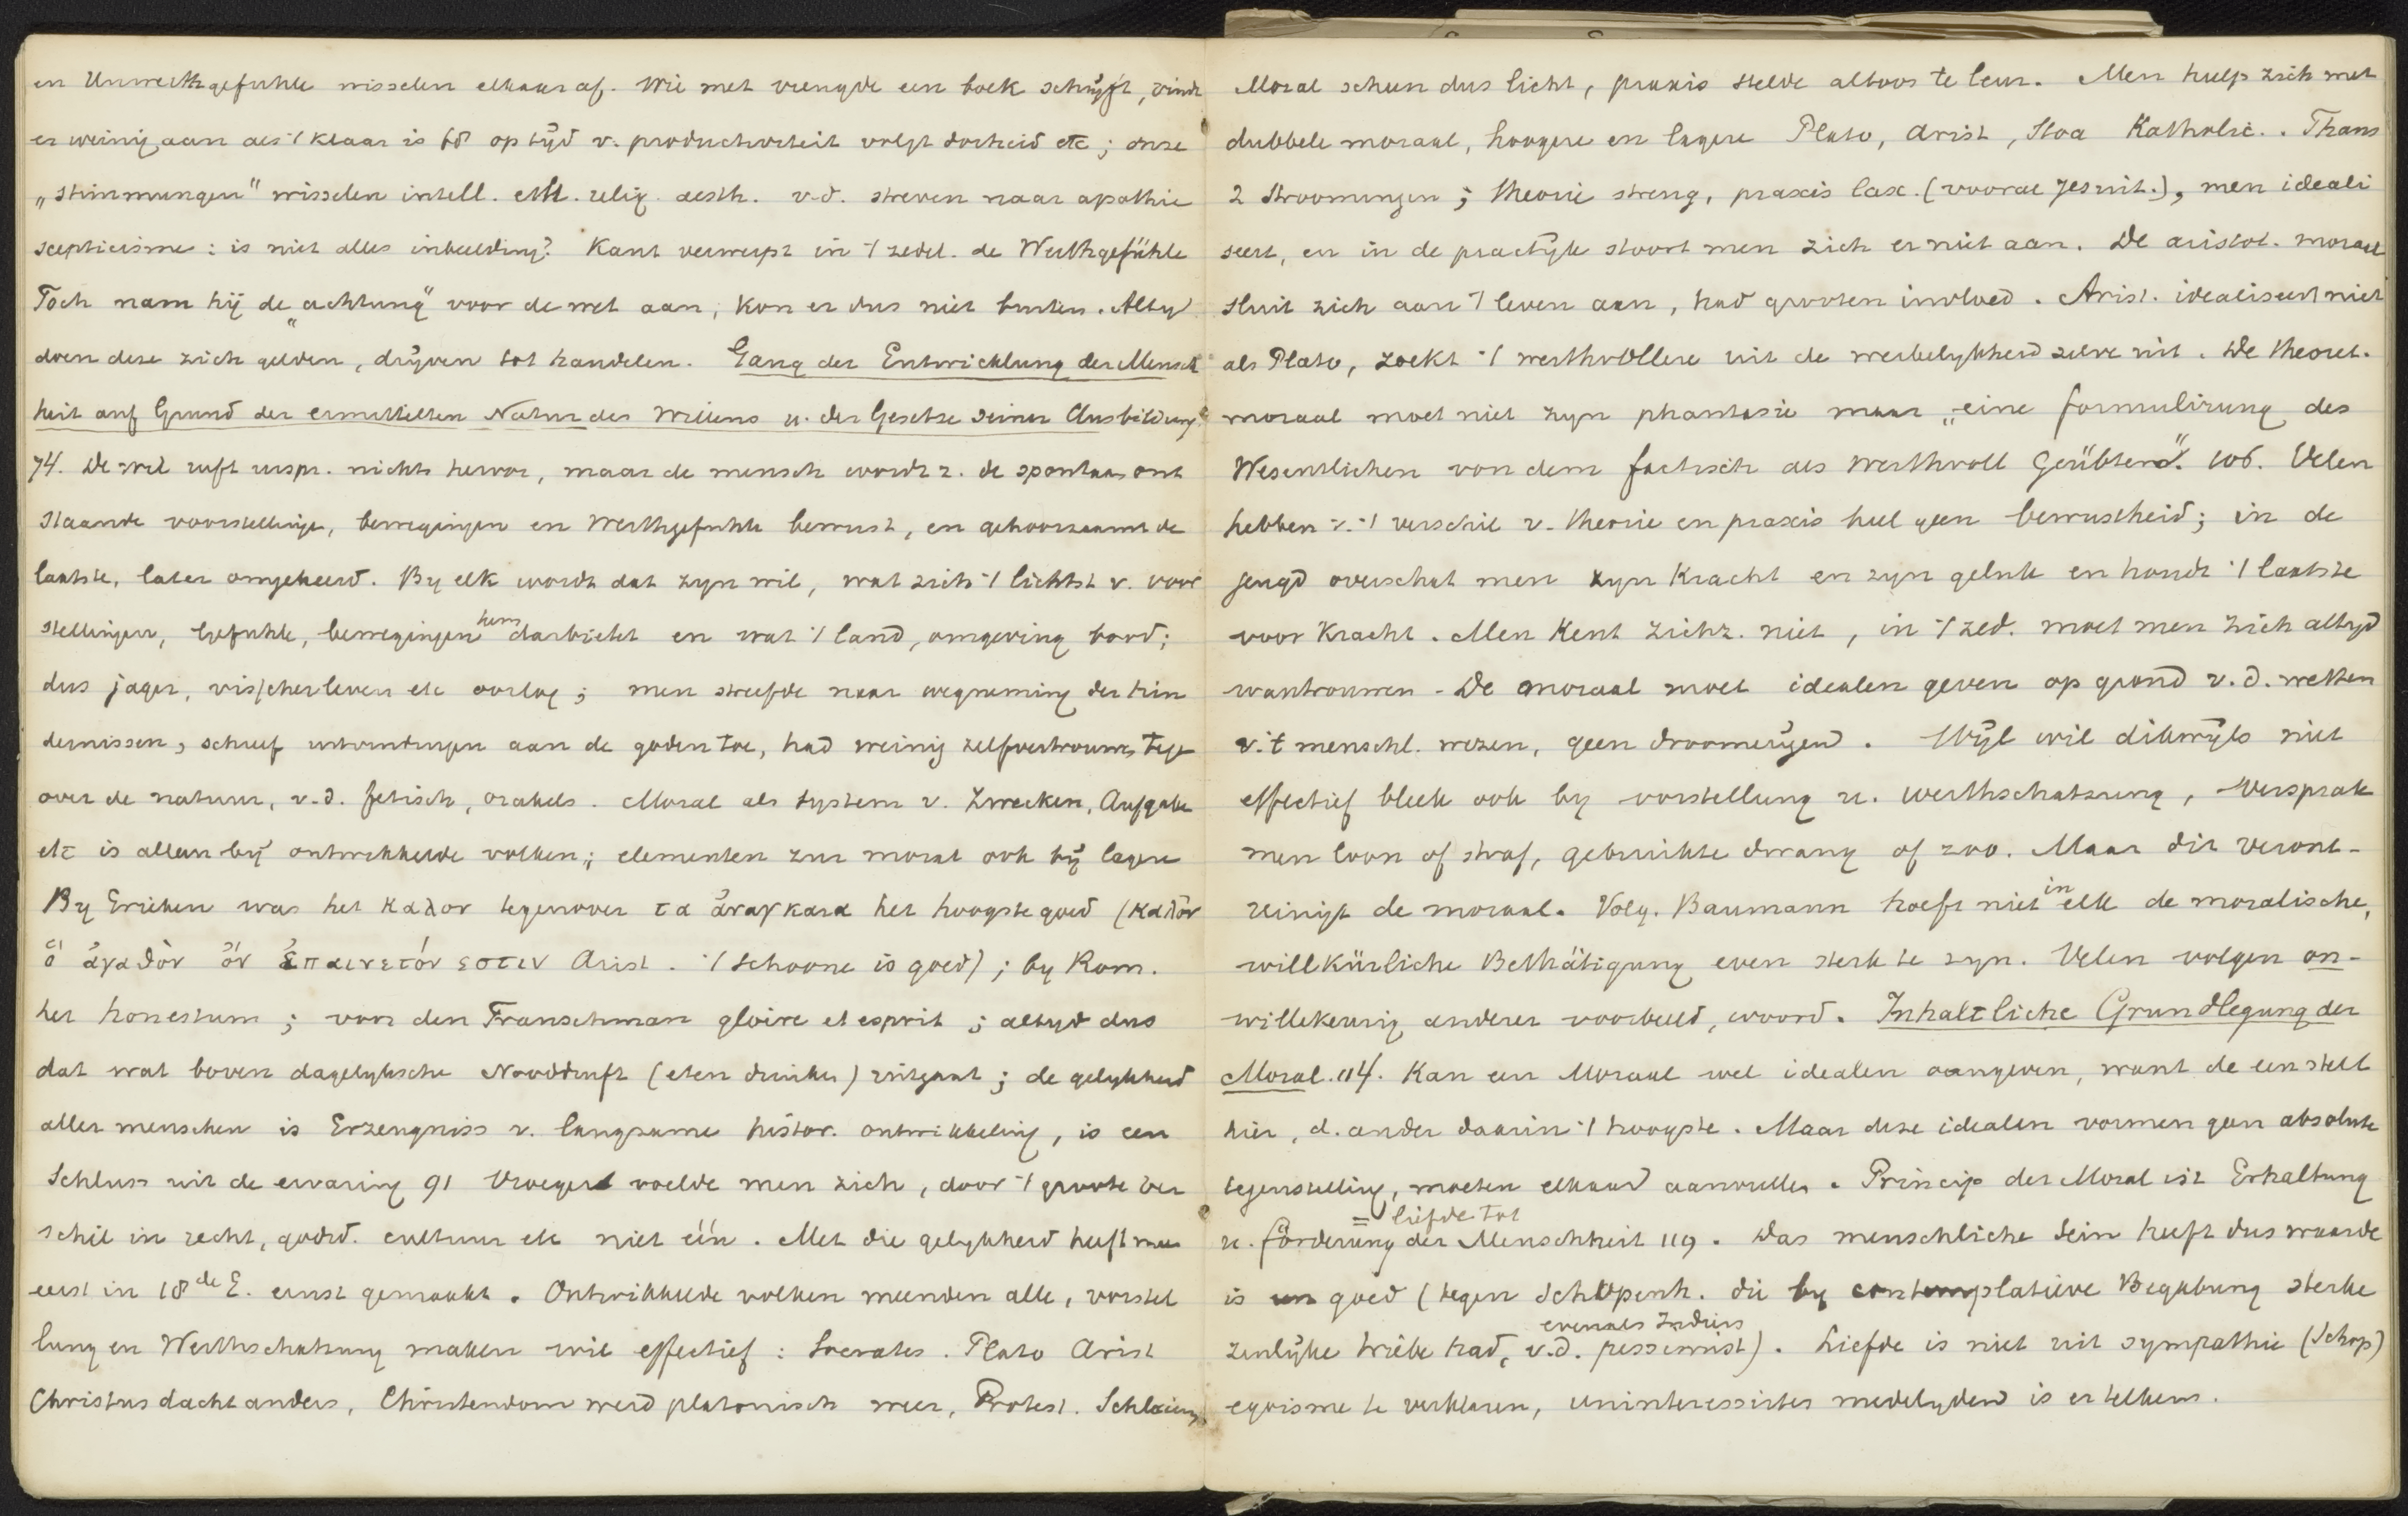 en Unwerthgefuhle wisselen elkaar af. Wie met vreugde een boek schrijft, vindt
er weinig aan als 't klaar is 68 op tijd v. productiviteit volgt dorheid etc; onze
„Stimmungen" wisselen intell. eth. relig. aesth. v.d. streven naar apathie
scepticisme: is niet alles inbeelding? Kant verwerpt in 't zedel. de Werthgefühle
Toch nam hij de „achtung" voor de wet aan, kon er dus niet buiten. Altijd
doen deze zich gelden, drijven tot handelen. Gang der Entwicklung der Mensch
heit auf Grund der ermittelten Natur des Willens u. der Gesetze seiner Ausbildung.
74. De wil ruft urspr. nichts hervor, maar de mensch wordt z. de spontaan ont
staande voorstellingen, bewegingen en Werthgefuhle bewust, en gehoorzaamt de
laatste, later omgekeerd. By elk wordt dat zyn wil, wat zich 't lichtst v. voor
stellingen, Gefuhle, bewegingen hem darbietet en wat 't land, omgeving bood;
dus jager, visscherleven etc oorlog; men streefde naar wegneming der hin
dernissen, schreef uitvindingen aan de goden toe, had weinig zelfvertrouwen tegen
over de natuur, v.d. fetisch, orakels. Moral als System v. Zwecken, Aufgabe
etc is alleen bij ontwikkelde volken; elementen zur moral ook bij lagere
By Grieken was het καλον tegenover τα ἀναγκαια het hoogste goed (καλὸν
ὃ ἀγαθὸν ὂν ἐπαινετόν εστιν Arist. 't Schoone is goed); by Rom.
het honestum; voor den Franschman gloire et esprit; altyd dus
dat wat boven dagelyksche Nooddruft (eten drinken) uitgaat; de gelykheid
aller menschen is Erzeugniss v. langzame histor. ontwikkeling, is een
Schluss uit de ervaring 91 Vroeger voelde men zich, door 't groote ver
schil in recht, godsd. cultuur etc niet één. Met die gelykheid heeft men
eerst in 18de E. ernst gemaakt. Ontwikkelde volken meenden alle, vorstel
lung en Werthschatzung maken wil effectief: Socrates. Plato Arist
Christus dacht anders, Christendom werd platonisch weer, Protest. Schleierm.
Moral scheen dus licht, praxis stelde altoos te leur. Men hielp zich met
dubbele moraal, hoogere en lagere Plato, Arist, Stoa Katholic.. Thans
2 Stroomingen; theorie streng, praxis lax. (vooral Jesuit.), men ideali
seert, en in de practijk stoort men zich er niet aan. De aristot. moraal
sluit zich aan 't leven aan, had grooten invloed. Arist. idealiseert niet
als Plato, zoekt 't werthvollere uit de werkelykheid zelve uit. De theoret.
moraal moet niet zyn phantasie maar „eine formulirung des
Wesentlichen von dem factisch als werthvoll Geübten". 106. Velen
hebben v. 't verschil v. theorie en praxis heel geen bewustheid; in de
jeugd overschat men zyn kracht en zyn geluk en houdt 't laatste
voor kracht. Men kent zichz. niet, in 't zed. moet men zich altyd
wantrouwen - De moraal moet idealen geven op grond v.d. wetten
v. 't menschl. wezen, geen droomerijen. Wijl wil dikwijls niet
effectief bleek ook by vorstellung u. werthschatzung, versprak
men loon of straf, gebruikte dwang of zoo. Maar dit veront-
reinigt de moraal. Volg. Baumann hoeft niet in elk de moralische,
willkürliche Bethätigung even sterk te zyn. Velen volgen on-
willekeurig anderer voorbeeld, woord. Inhaltliche Grundlegung der
Moral. 114. Kan een Moraal wel idealen aangeven, want de een stelt
hier, d. ander daarin 't hoogste. Maar deze idealen vormen geen absolute
tegenstelling, moeten elkaar aanvullen. Princip der Moral ist Erhaltung
= liefde tot
u. förderung der Menschheit 119. Das menschliche Sein heeft dus waarde
is goed (tegen Schopenh. die by contemplatieve Begabung sterke
evenals Indiërs
zinlijke triebe had, v.d. pessimist). Liefde is niet uit sympathie (Schop)
egoisme te verklaren, uninteressirtes medelyden is er telkens.